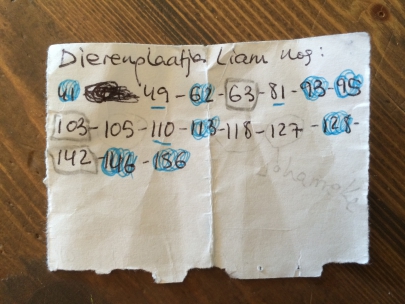 Dierenplaatjes Liam nog:
41 49 - 62 - 63 - 81 - 93 - 95
103 - 105 - 110 - 113 - 118 - 127 - 128 -
142 - 146 - 186